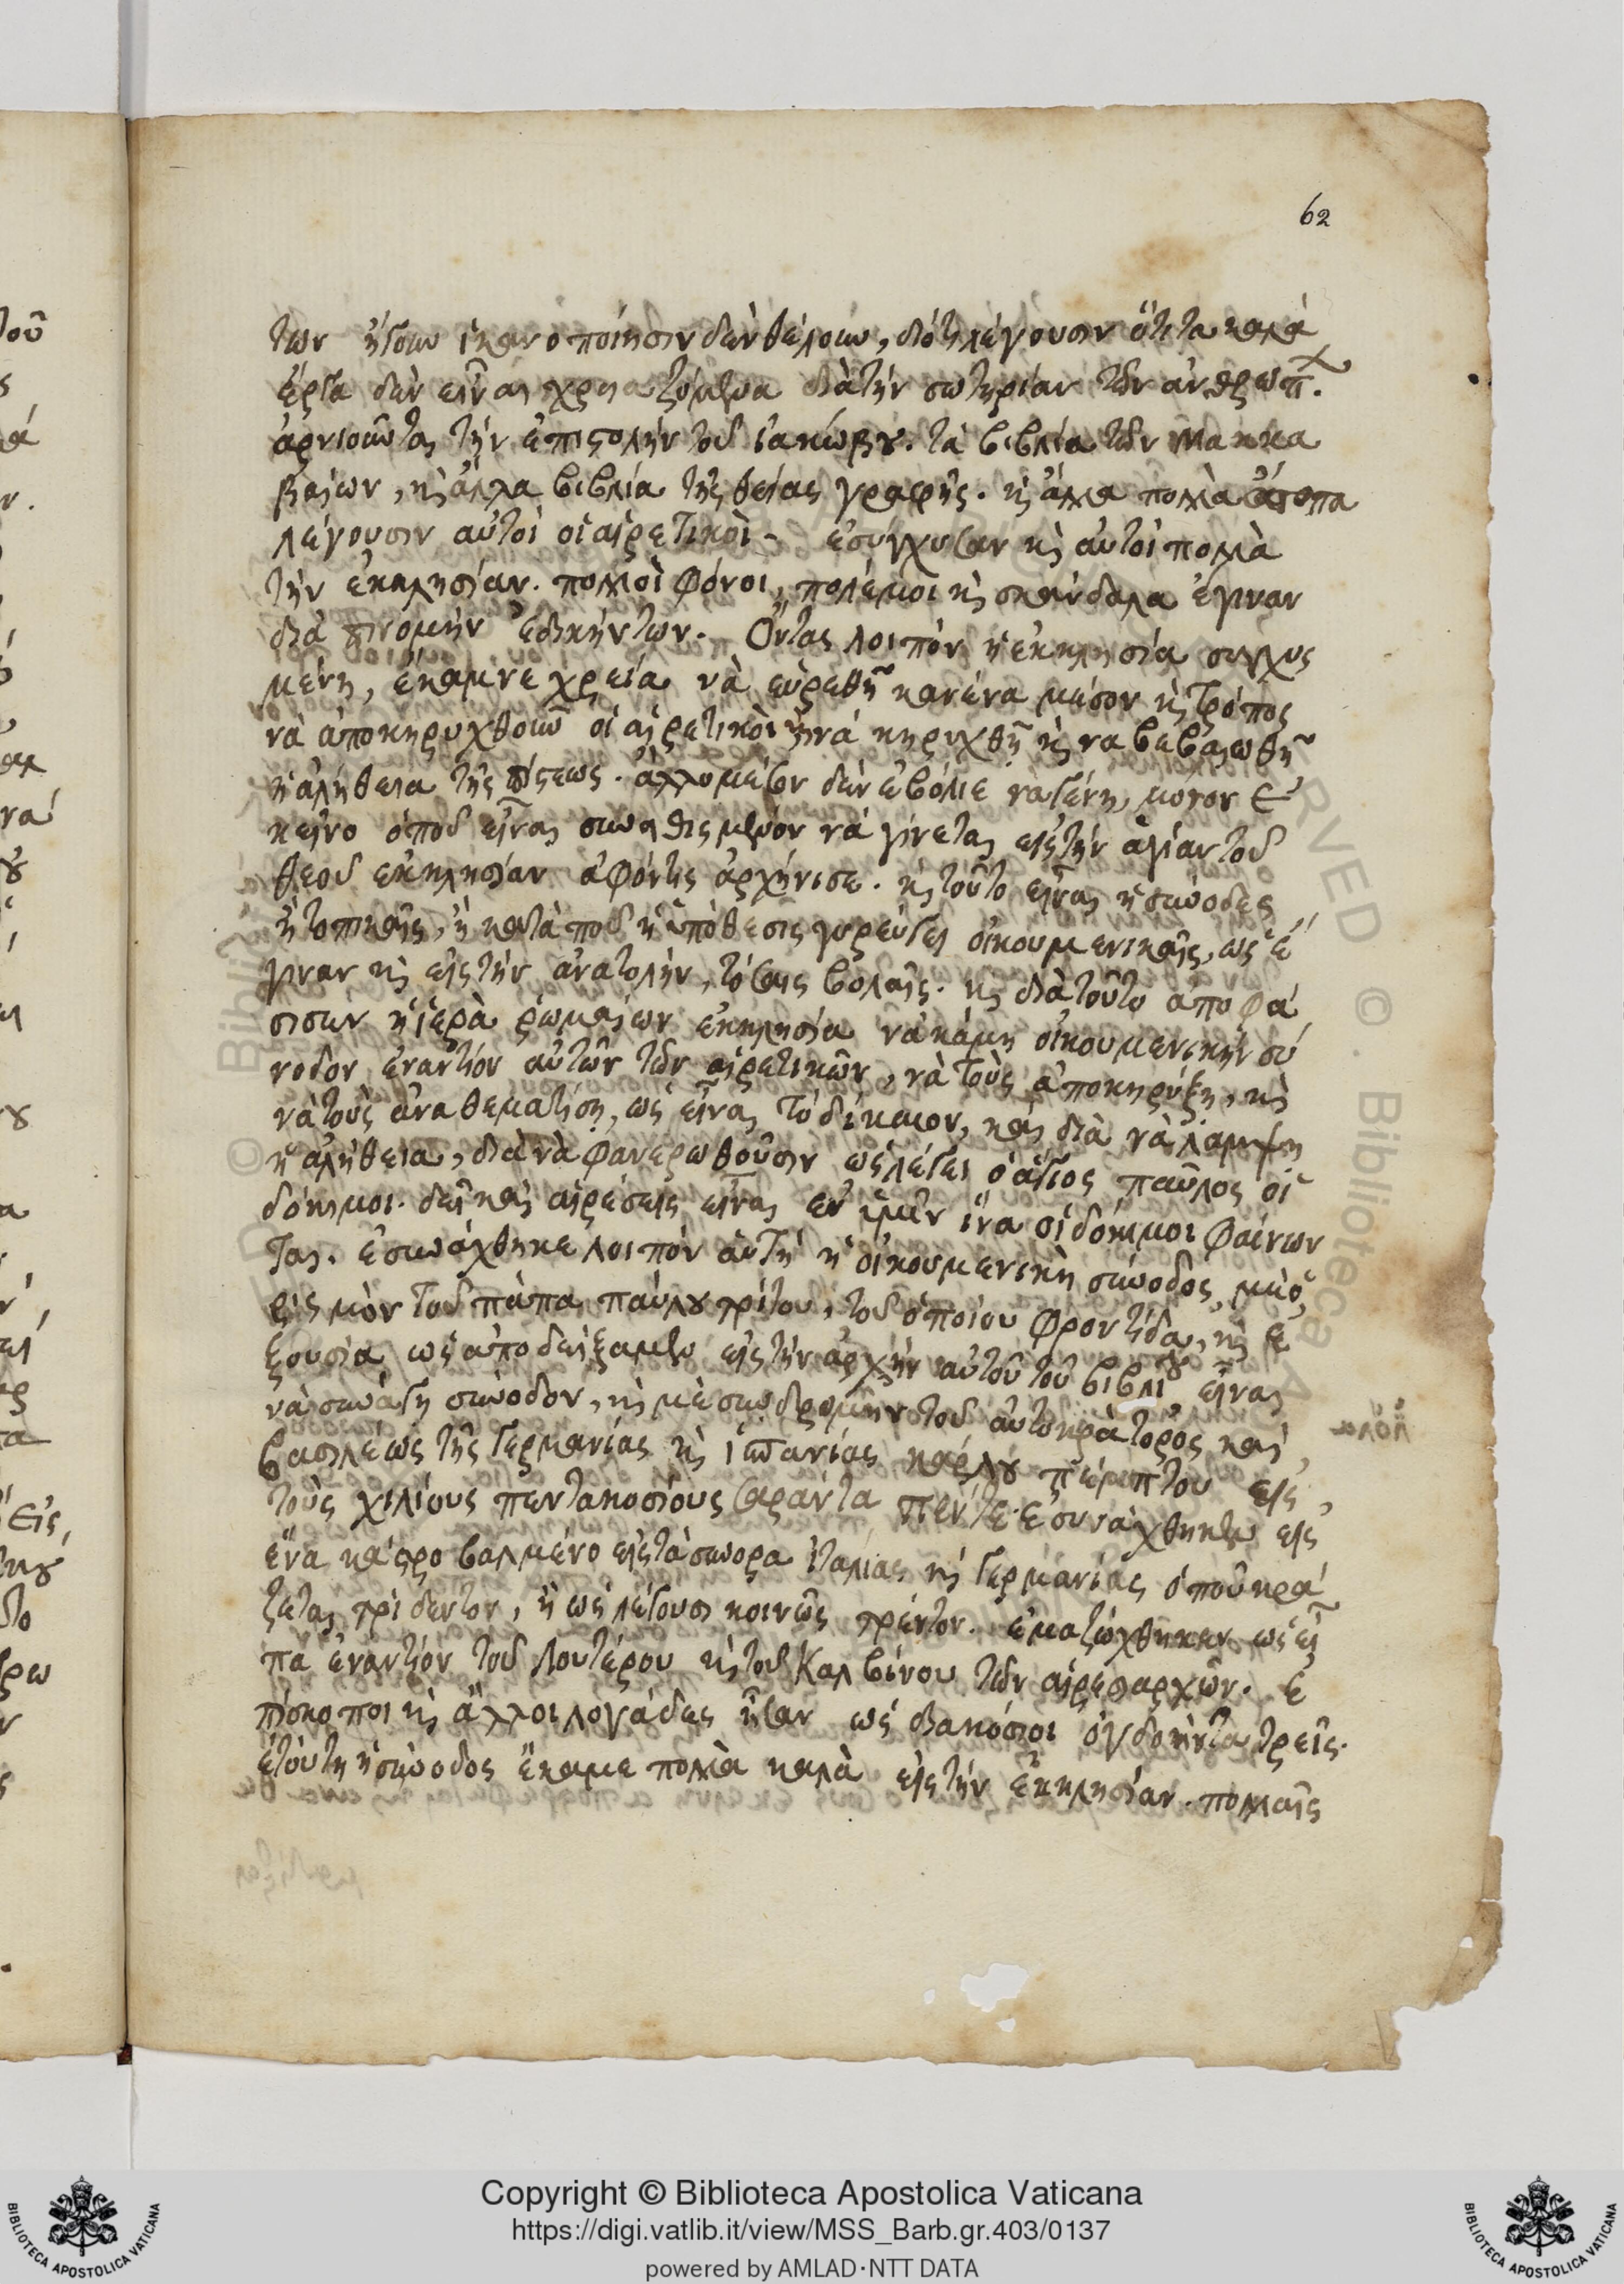 62
των ἤγουν ἱκανοποίησιν δὲν θέλουν, διότι λέγουσιν ὅτι τα καλά
ἔργα δὲν εἶναι χρηαζόμενα διὰ τὴν σωτηρίαν τῶν ἀνθρωπ.
ἀρνιοῦνται τὴν ἐπιστολὴν τοῦ ἰακώβου. τὰ βιβλία τῶν Μακκα
βαίων, κὶ ἄλλα βιβλία τῆς θείας γραφῆς. κὶ ἄλλα πολλὰ ἄτοπα
λέγουσιν αὐτοὶ οἱ αἱρετικοὶ - ἐσύγχυσαν κὶ αὐτοὶ πολλὰ
τὴν ἐκκλησίαν. πολλοὶ φόνοι, πολέμοι κὶ σκάνδαλα ἔγιναν
διὰ ἐδικήν των. Ὄντας λοιπὸν ἡ ἐκκλησία συγχυς
μένη, ἔκαμνε χρεία νὰ εὑρεθῆ κανένα μέσον κὶ τρόπος
νὰ ἀποκηρυχθοῦν οἱ αἱρετικοὶ κὶ νὰ κηρυχθῆ κὶ να βεβαιωθῆ
ἡ ἀλήθεια τῆς πίστεως. ἄλλο μέσον δὲν ἐβόλιε νὰ γένη μονον ἐ
κεῖνο ὁποῦ εἶναι συνηθισμένον νὰ γίνεται εἰς τὴν ἁγίαν τοῦ
θεοῦ ἐκκλησίαν ἀφόντις ἀρχήνισε. κὶ τοῦτο εἶναι ἡ σύνοδες
ἢ τοπικαῖς, ἢ κατὰ ποῦ ἡ ὑπόθεσις γυρεύγει οἰκουμενικαῖς, ὡς ἔ
γιναν κὶ εἰς τὴν ἀνατολὴν, τόσαις βολαῖς. κὶ διὰ τοῦτο ἀποφά
σισεν ἡ ἱερὰ ῥωμαίων ἐκκλησία νὰ κάμη οἰκουμενικὴν σύ
νοδον ἐναντίον αὐτῶν τῶν αἱρετικῶν, νὰ τοὺς ἀποκηρύξη, κὶ
νὰ τοὺς ἀναθεματίση, ὡς εἶναι τὸ δίκαιον, καὶ διὰ νὰ λάμψη
ἡ ἀλήθεια, διὰ νὰ φανερωθοῦσιν ὡς λέγει ὁ ἅγιος παῦλος οἱ
δόκιμοι. δεῖ καὶ αἱρέσεις εἶναι ἐν ὑμῖν ἵνα οἱ δόκιμοι φαίνων
ται. ἐσυνάχθηκε λοιπὸν αὐτὴ ἡ οἰκουμενικὴ σύνοδος, μὲ ὁ
ρισμὸν τοῦ πάπα παύλου τρίτου, τοῦ ὁποίου φροντίδα, κὶ ἐ
ξουσία ὡς ἀποδείξαμεν εἰς τὴν ἀρχὴν αὐτοῦ τοῦ βιβλίου εἶναι
νὰ συνάγη σύνοδον, κὶ μὲ συνδρομὴν τοῦ αὐτοκράτορος καὶ
βασιλέως τῆς Γερμανίας κὶ ἱσπανίας κάρλου πέμπτου εἰς
τοὺς χιλίους πεντακοσίους σαράντα πέντε. ἐσυνάχθηκεν εἰς
ἕνα κάστρο βαλμένο εἰς τὰ σύνορα ἰταλίας κὶ Γερμανίας ὁποῦ κρά
ζεται τρίδεντον, ἢ ὡς λέγουσι κοινῶς τρέντον. ἐμαζώχθηκεν ὡς εἶ
πα ἐναντίον τοῦ Λουτέρου κὶ τοῦ Καλβίνου τῶν αἱρεσιαρχῶν. ἐ
πίσκοποι κὶ ἄλλοι λογάδες ἦσαν ὡς διακόσιοι ὀγδοῆντα τρεῖς.
ἐτούτη ἡ σύνοδος ἔκαμε πολλὰ καλὰ εἰς τὴν ἐκκλησίαν. πολλαῖς
Copyright © Biblioteca Apostolica Vaticana
https://digi.vatlib.it/view/MSS_Barb.gr.403/0137
powered by AMLAD·NTT DATA